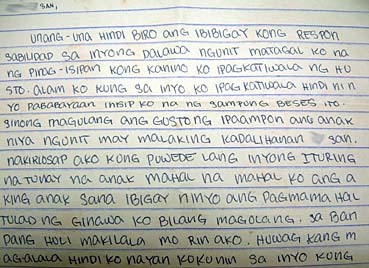 SAN,
UNANG-UNA HINDI BIRO ANG IBIBIGAY KONG RESPON
SABILIDAD SA INYONG DALAWA NGUNIT MATAGAL KO NA
NG PINAG-ISIPAN KONG KANINO KO IPAGKATIWALA NG HU
STO. ALAM KO KUNG SA INYO KO IPAGKATIWALA HINDI NIN
YO PABABAYAAN INSIP KO NA NG SAMPUNG BESES ITO.
SINONG MAGULANG ANG GUSTONG IPAAMPON ANG ANAK
NIYA NGUNIT MAY MALAKING KADALIHANAN SAN.
NAKIKIUSAP AKO KONG PUWEDE LANG INYONG ITURING
NA TUNAY NA ANAK MAHAL NA MAHAL KO ANG A
KING ANAK SANA IBIGAY NINYO ANG PAGMAMAHAL
TULAD NG GINAWA KO BILANG MAGOLANG. SA BAN
DANG HOLI MAKILALA MO RIN AKO. HUWAG KANG M
AGALALA HINDI KO NAYAN KOKUNIN SA INYO KONG